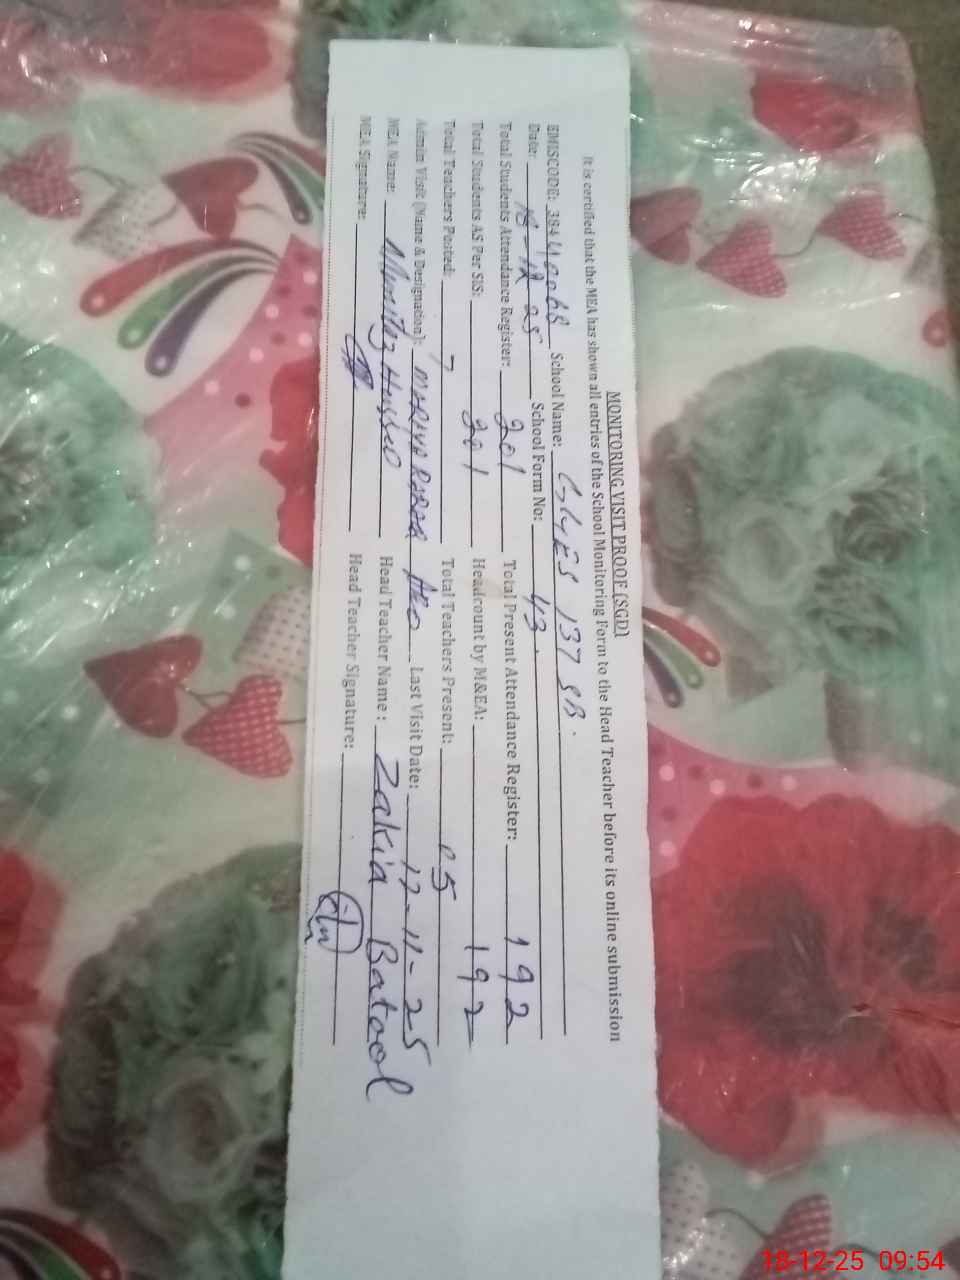 MONITORING VISIT PROOF (SGD)
It is certified that the MEA has shown all entries of the School Monitoring Form to the Head Teacher before its online submission
EMISCODE: 384 School Name: 137 SB.
Date: 18-12 25 School Form No: 43
Total Students Attendance Register: 201 Total Present Attendance Register: 192
Total Students AS Per SIS: 201 Headcount by M&EA: 192
Total Teachers Posted: 7 Total Teachers Present: 05
Admin Visit (Name & Designation): MARIYA BABAR AEO Last Visit Date: 17-11-25
MEA Name: Head Teacher Name: Zakia Batool
MEA Signature: Head Teacher Signature:
18-12-25 09:54